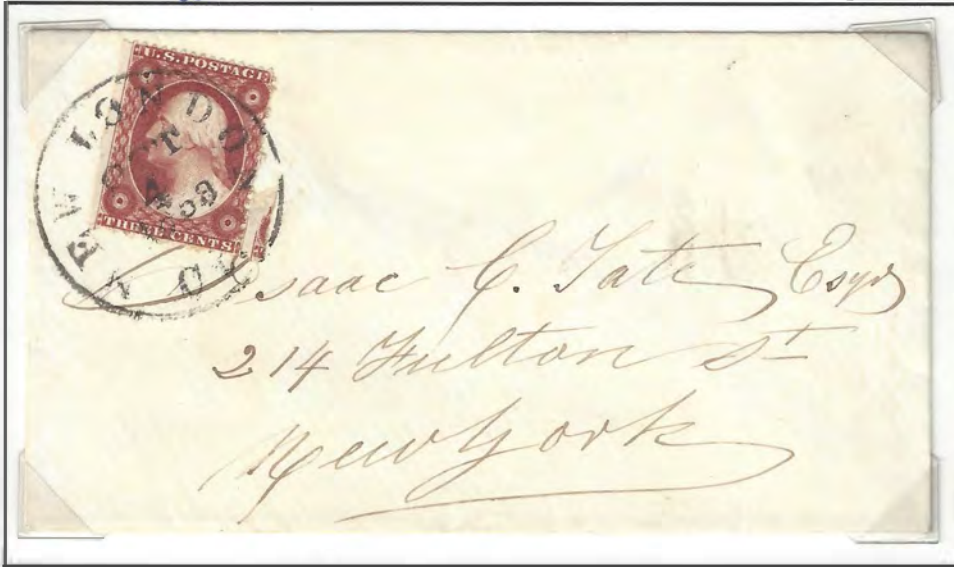 U.S. POSTAGE
THREE CENTS
NEW LONDON
OCT
4
Isaac C. Tate Esqr
214 Fulton St
New York